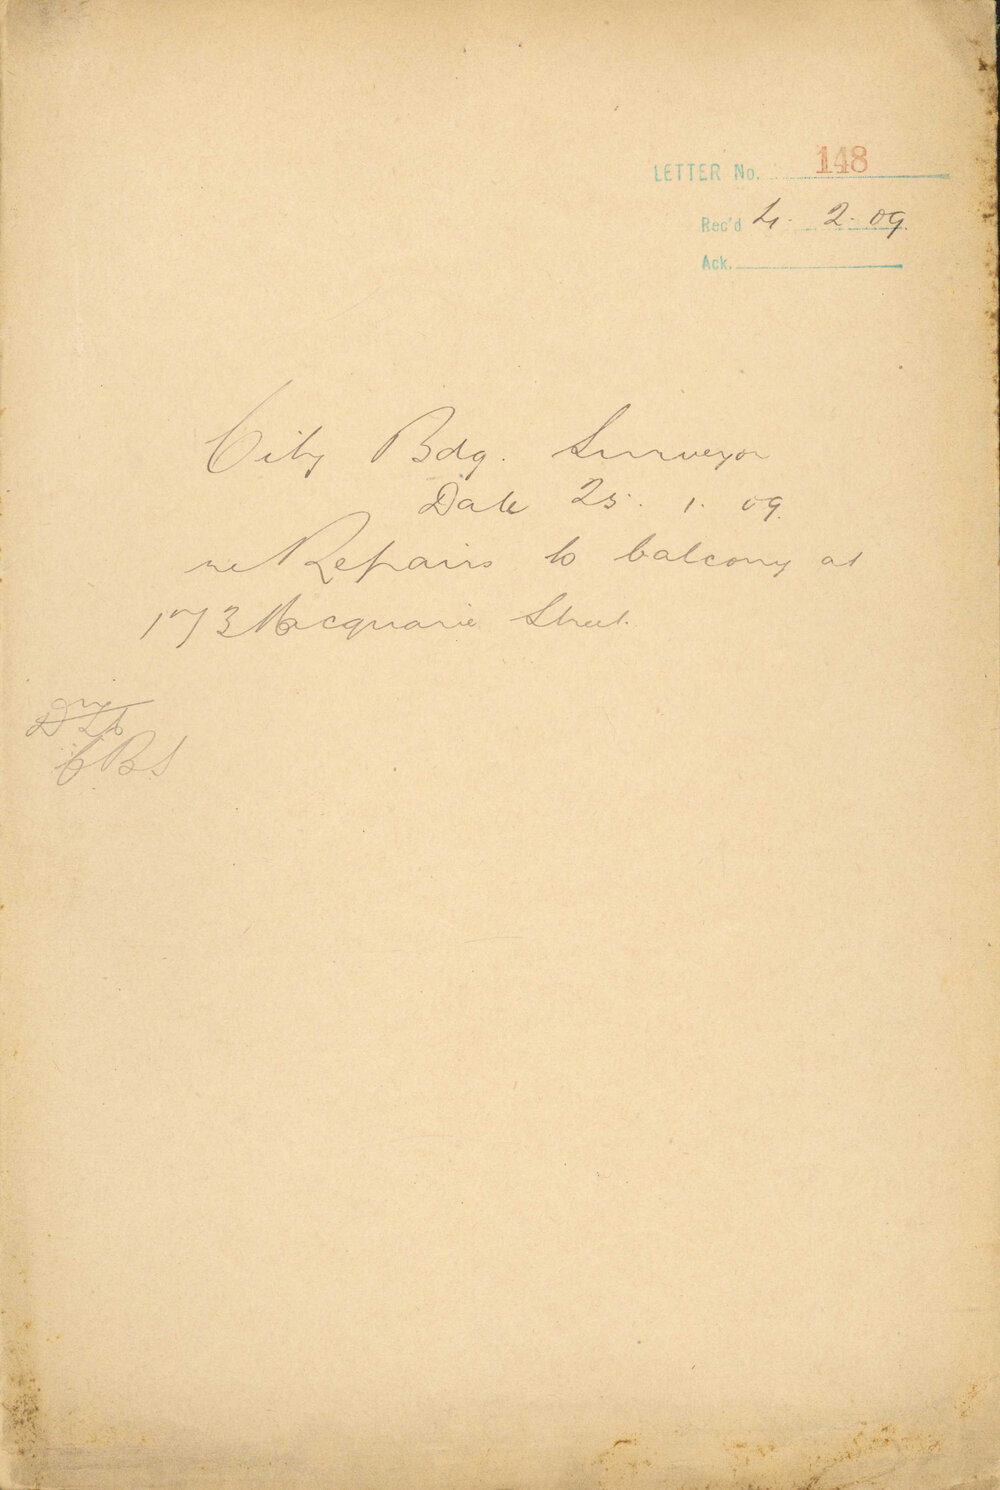 LETTER No. 148
Rec'd 4. 2. 09.
Ack.
City Bdg. Surveyor
Date 25. 1. 09.
re Repairs to balcony at
173 Macquarie Street.
CBS